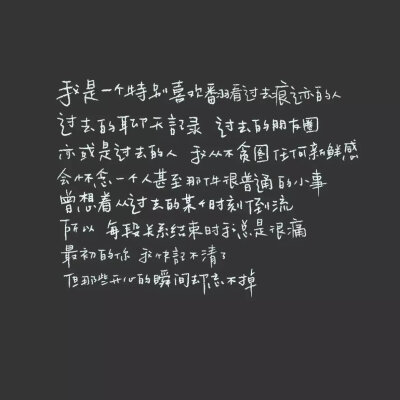 我是一个特别喜欢翻看过去痕迹的人
过去的聊天記录 过去的朋友圈
亦或是过去的人 我从不贪图任何新鲜感
会怀念一个人甚至那件很普通的小事
曾想着从过去的某个时刻倒流
所以 每段关系结束时我总是很痛
最初的你 我快記不清了
但那些开心的瞬间却忘不掉